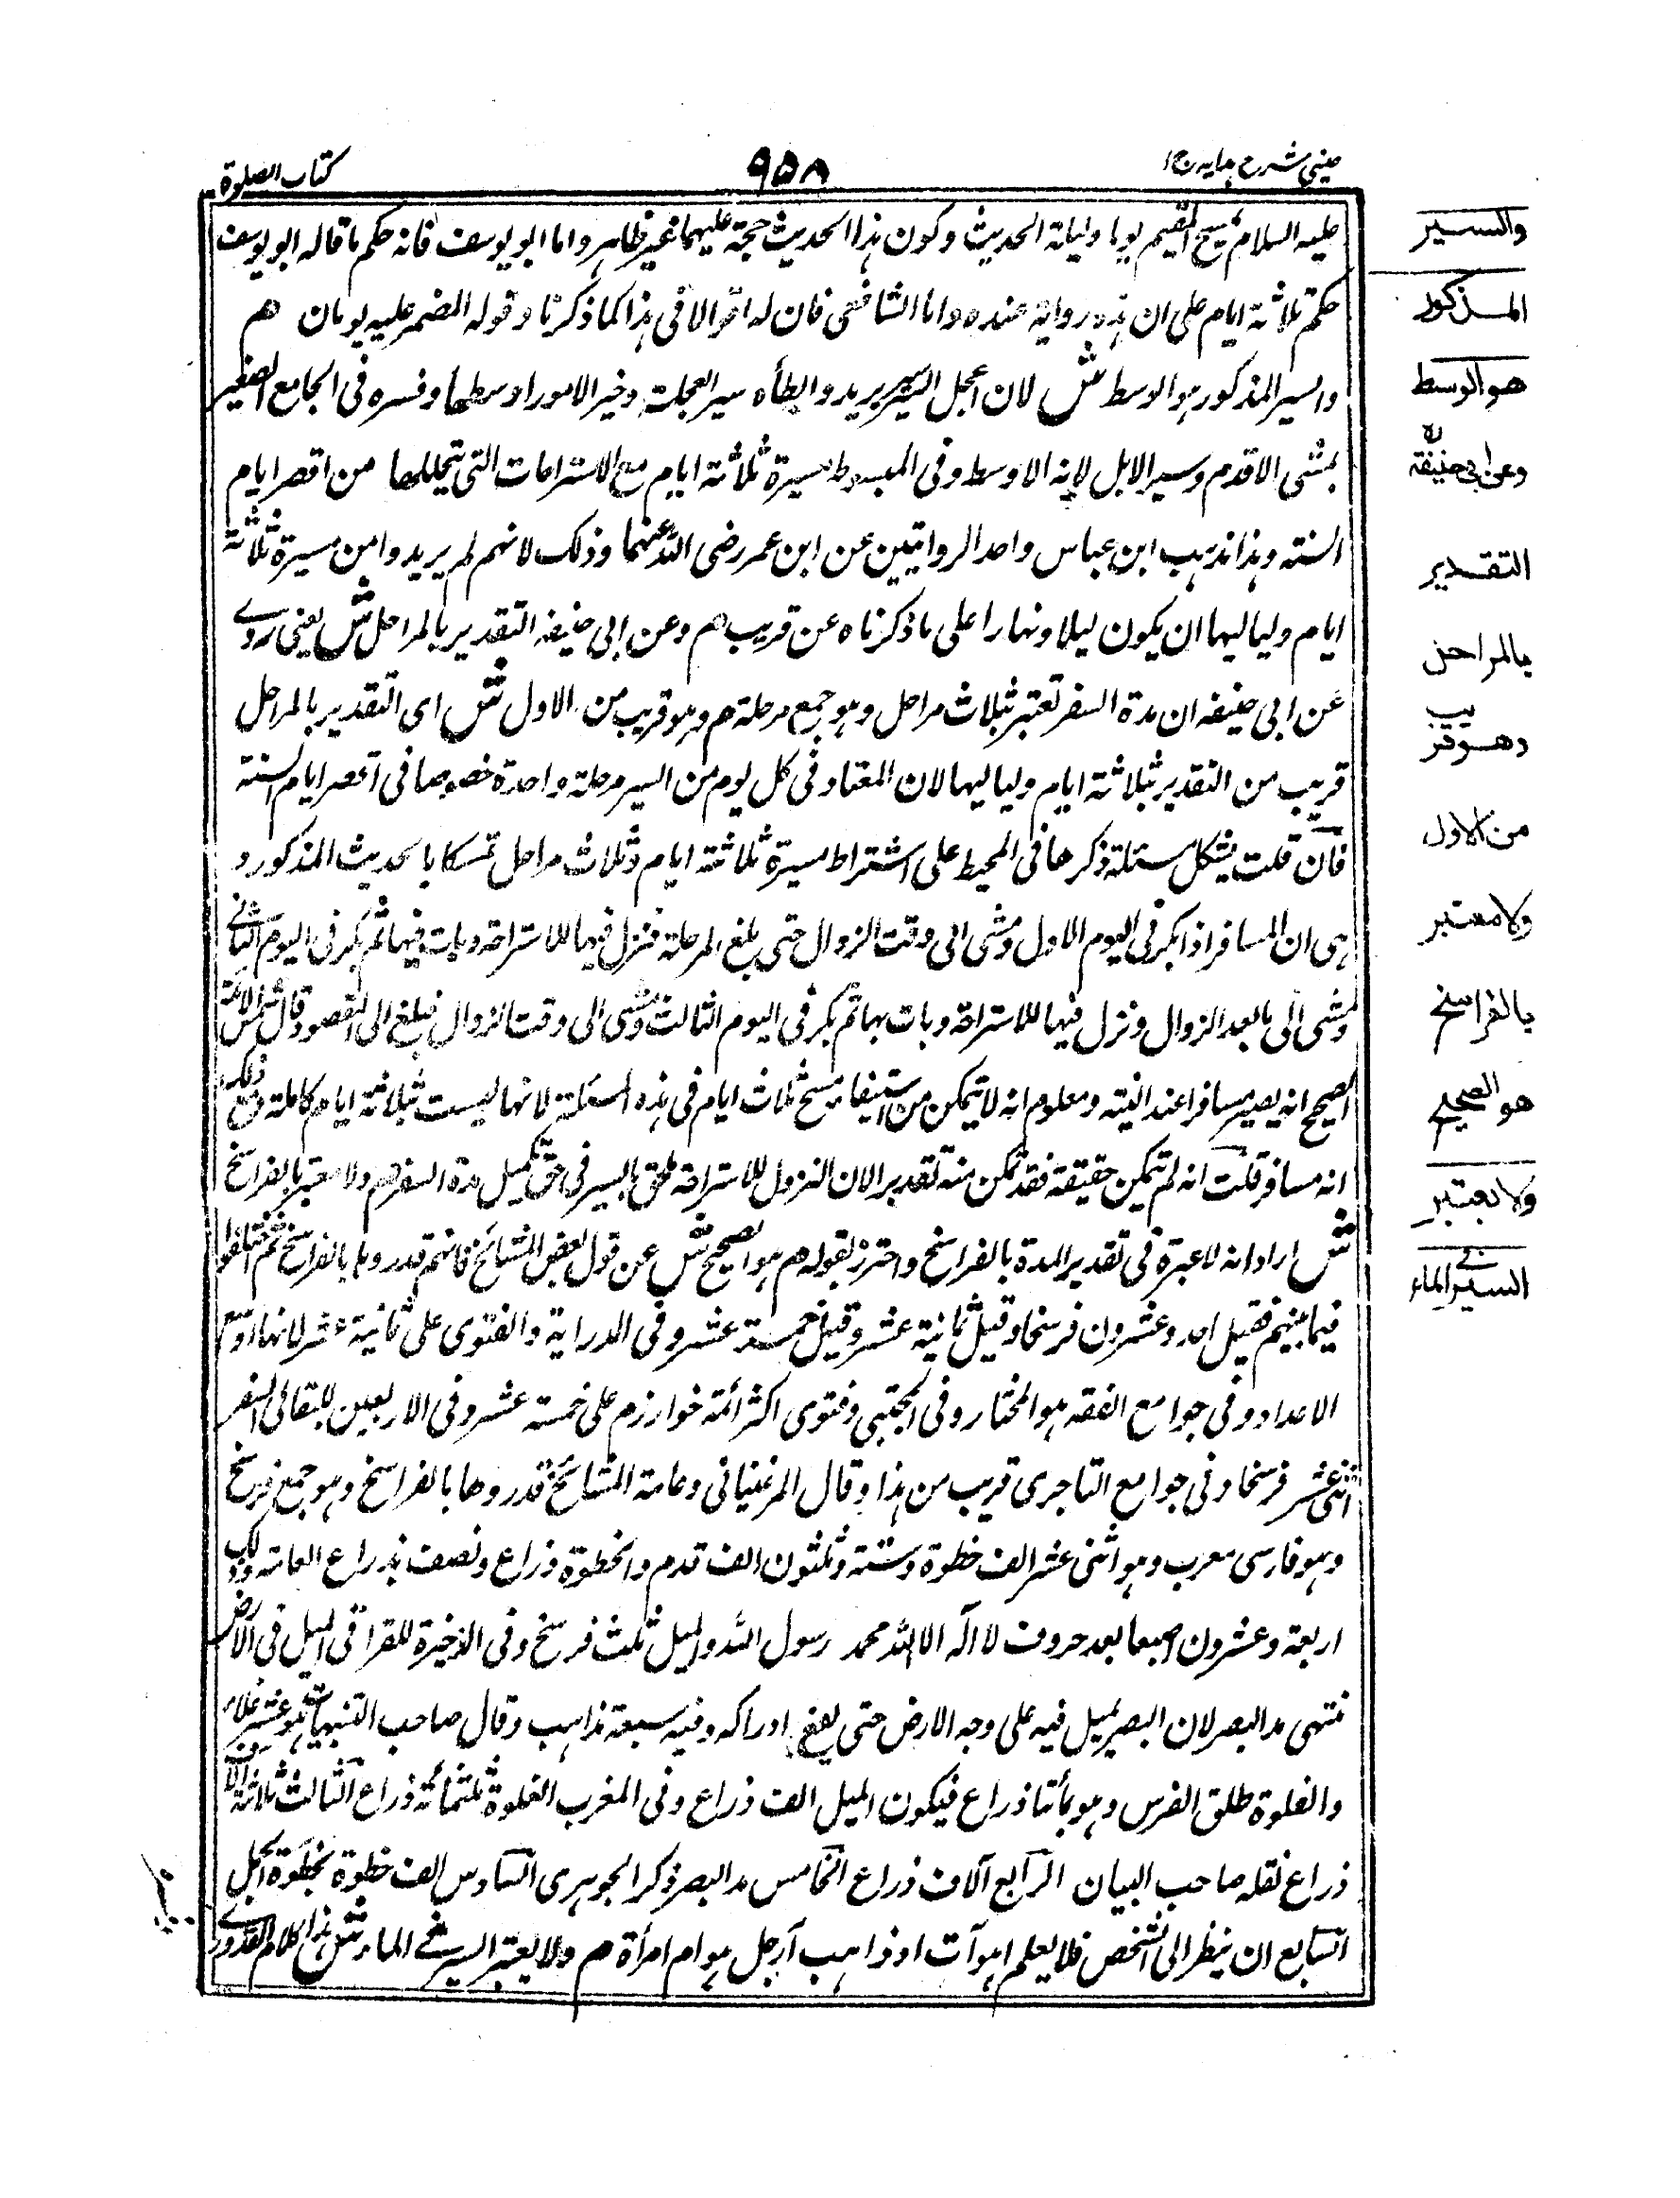 عینی شرح ہدایہ ج ۱
۹۵۸
کتاب الصلوة
علیه السلام یمسح المقیم یوما ولیلة الحدیث وکون ہذا الحدیث حجة علیہما غیر ظاہر واما ابو یوسف فانه حکم ما قاله ابو یوسف
حکم ثلاثة ایام علی ان ہذہ روایة عندہ واما الشافعی فان له اقوالا فی ہذا کما ذکرنا وقوله المضمر علیه یومان ھم
والسیر المذکور ہو الوسط ش لان اعجل السیر سیر برید وابطأہ سیر العجلة وخیر الامور اوسطھا وفسرہ فی الجامع الصغیر
بمشی الاقدم وسیر الابل لانه الاوسط وفی المبسوط مسیرة ثلاثة ایام مع الاستراحات التی یتخللھا من اقصر ایام
السنة وہذا مذہب ابن عباس واحد الروایتین عن ابن عمر رضی اللہ عنہما وذلک لانہم لم یریدوا من مسیرة ثلاثة
ایام ولیالیہا ان یکون لیلا ونہارا علی ما ذکرناہ عن قریب ھم وعن ابی حنیفه التقدیر بالمراحل ش یعنی روے
عن ابی حنیفه ان مدة السفر تعتبر بثلاث مراحل وہو جمع مرحلة ھم وہو قریب من الاول ش ای التقدیر بالمراحل
قریب من التقدیر بثلاثة ایام ولیالیہا لان المعتاد فی کل یوم من السیر مرحلة واحدة خصوصا فی اقصر ایام السنة
فان قلت یشکل مسئلة ذکرھا فی المحیط علی اشتراط مسیرة ثلاثة ایام وثلاث مراحل تمسکا بالحدیث المذکور و
ہی ان المسافر اذا بکر فی الیوم الاول ومشی الی وقت الزوال حتی بلغ المرحلة فنزل فیہا للاستراحة وبات فیہا ثم بکر فی الیوم الثانی
ومشی الی ما بعد الزوال ونزل فیہا للاستراحة وبات بہا ثم بکر فی الیوم الثالث ومشی الی وقت الزوال فبلغ الی المقصود قال شمس الائمة
الصحیح انه یصیر مسافرا عند النیة ومعلوم انه لا یتمکن من استیفاء مسح ثلاث ایام فی ہذہ المسئلة لانہا لیست بثلاثة ایام کاملة ومع ذلک
انه مسافر قلت انه لم یتمکن حقیقة فقد تمکن منه تقدیرا لان النزول للاستراحة ملحق بالسیر فی حق تکمیل مدة السفر ھم ولا معتبر بالفراسخ
ش اراد انه لا عبرة فی تقدیر المدة بالفراسخ واحترز بقوله ھم ہو الصحیح ش عن قول بعض المشائخ فانہم قدروہا بالفراسخ ثم اختلفوا
فیما بینہم فقیل احد وعشرون فرسخا وقیل ثمانیة عشر وقیل خمسة عشر وفی الدرایة والفتوی علی ثمانیة عشر لانہا اوسط
الاعداد وفی جوامع الفقه ہو المختار وفی المجتبی وفتوی اکثر ائمة خوارزم علی خمسة عشر وفی الاربعین للبقالی السفر
اثنی عشر فرسخا وفی جوامع التاجری قریب من ہذا وقال المرغینانی وعامة المشائخ قدروھا بالفراسخ وہو جمع فرسخ
وہو فارسی معرب وہو اثنی عشر الف خطوة وستة وثلثون الف قدم والخطوة ذراع ونصف بذراع العامة وذلک
اربعة وعشرون اصبعا بعدد حروف لا اله الا اللہ محمد رسول اللہ والمیل ثلث فرسخ وفی الذخیرة للقرافی المیل فی الارض
منتہی مد البصر لان البصر یمیل فیه علی وجه الارض حتی یفنی ادراکه وفیه سبعة مذاہب وقال صاحب التنبیہات ہو عشر غلاء
والغلوة طلق الفرس وہو مأتا ذراع فیکون المیل الف ذراع وفی المغرب الغلوة ثلثمائة ذراع الثالث ثلاثة آلاف
ذراع نقله صاحب البیان الرابع آلاف ذراع الخامس مد البصر ذکرہ الجوہری السادس الف خطوة بخطوة الجمل
السابع ان ینظر الی الشخص فلا یعلم اہو آت او ذاہب ارجل ہو ام امرأة ھم ولا یعتبر السیر فی الماء ش ہذا کلام القدوری
والسیر
المذکور
هو الوسط
وعن ابی حنیفة رح
التقدیر
بالمراحل
وهو قریب
من الاول
ولا معتبر
بالفراسخ
هو الصحیح
ولا یعتبر
السیر فی الماء